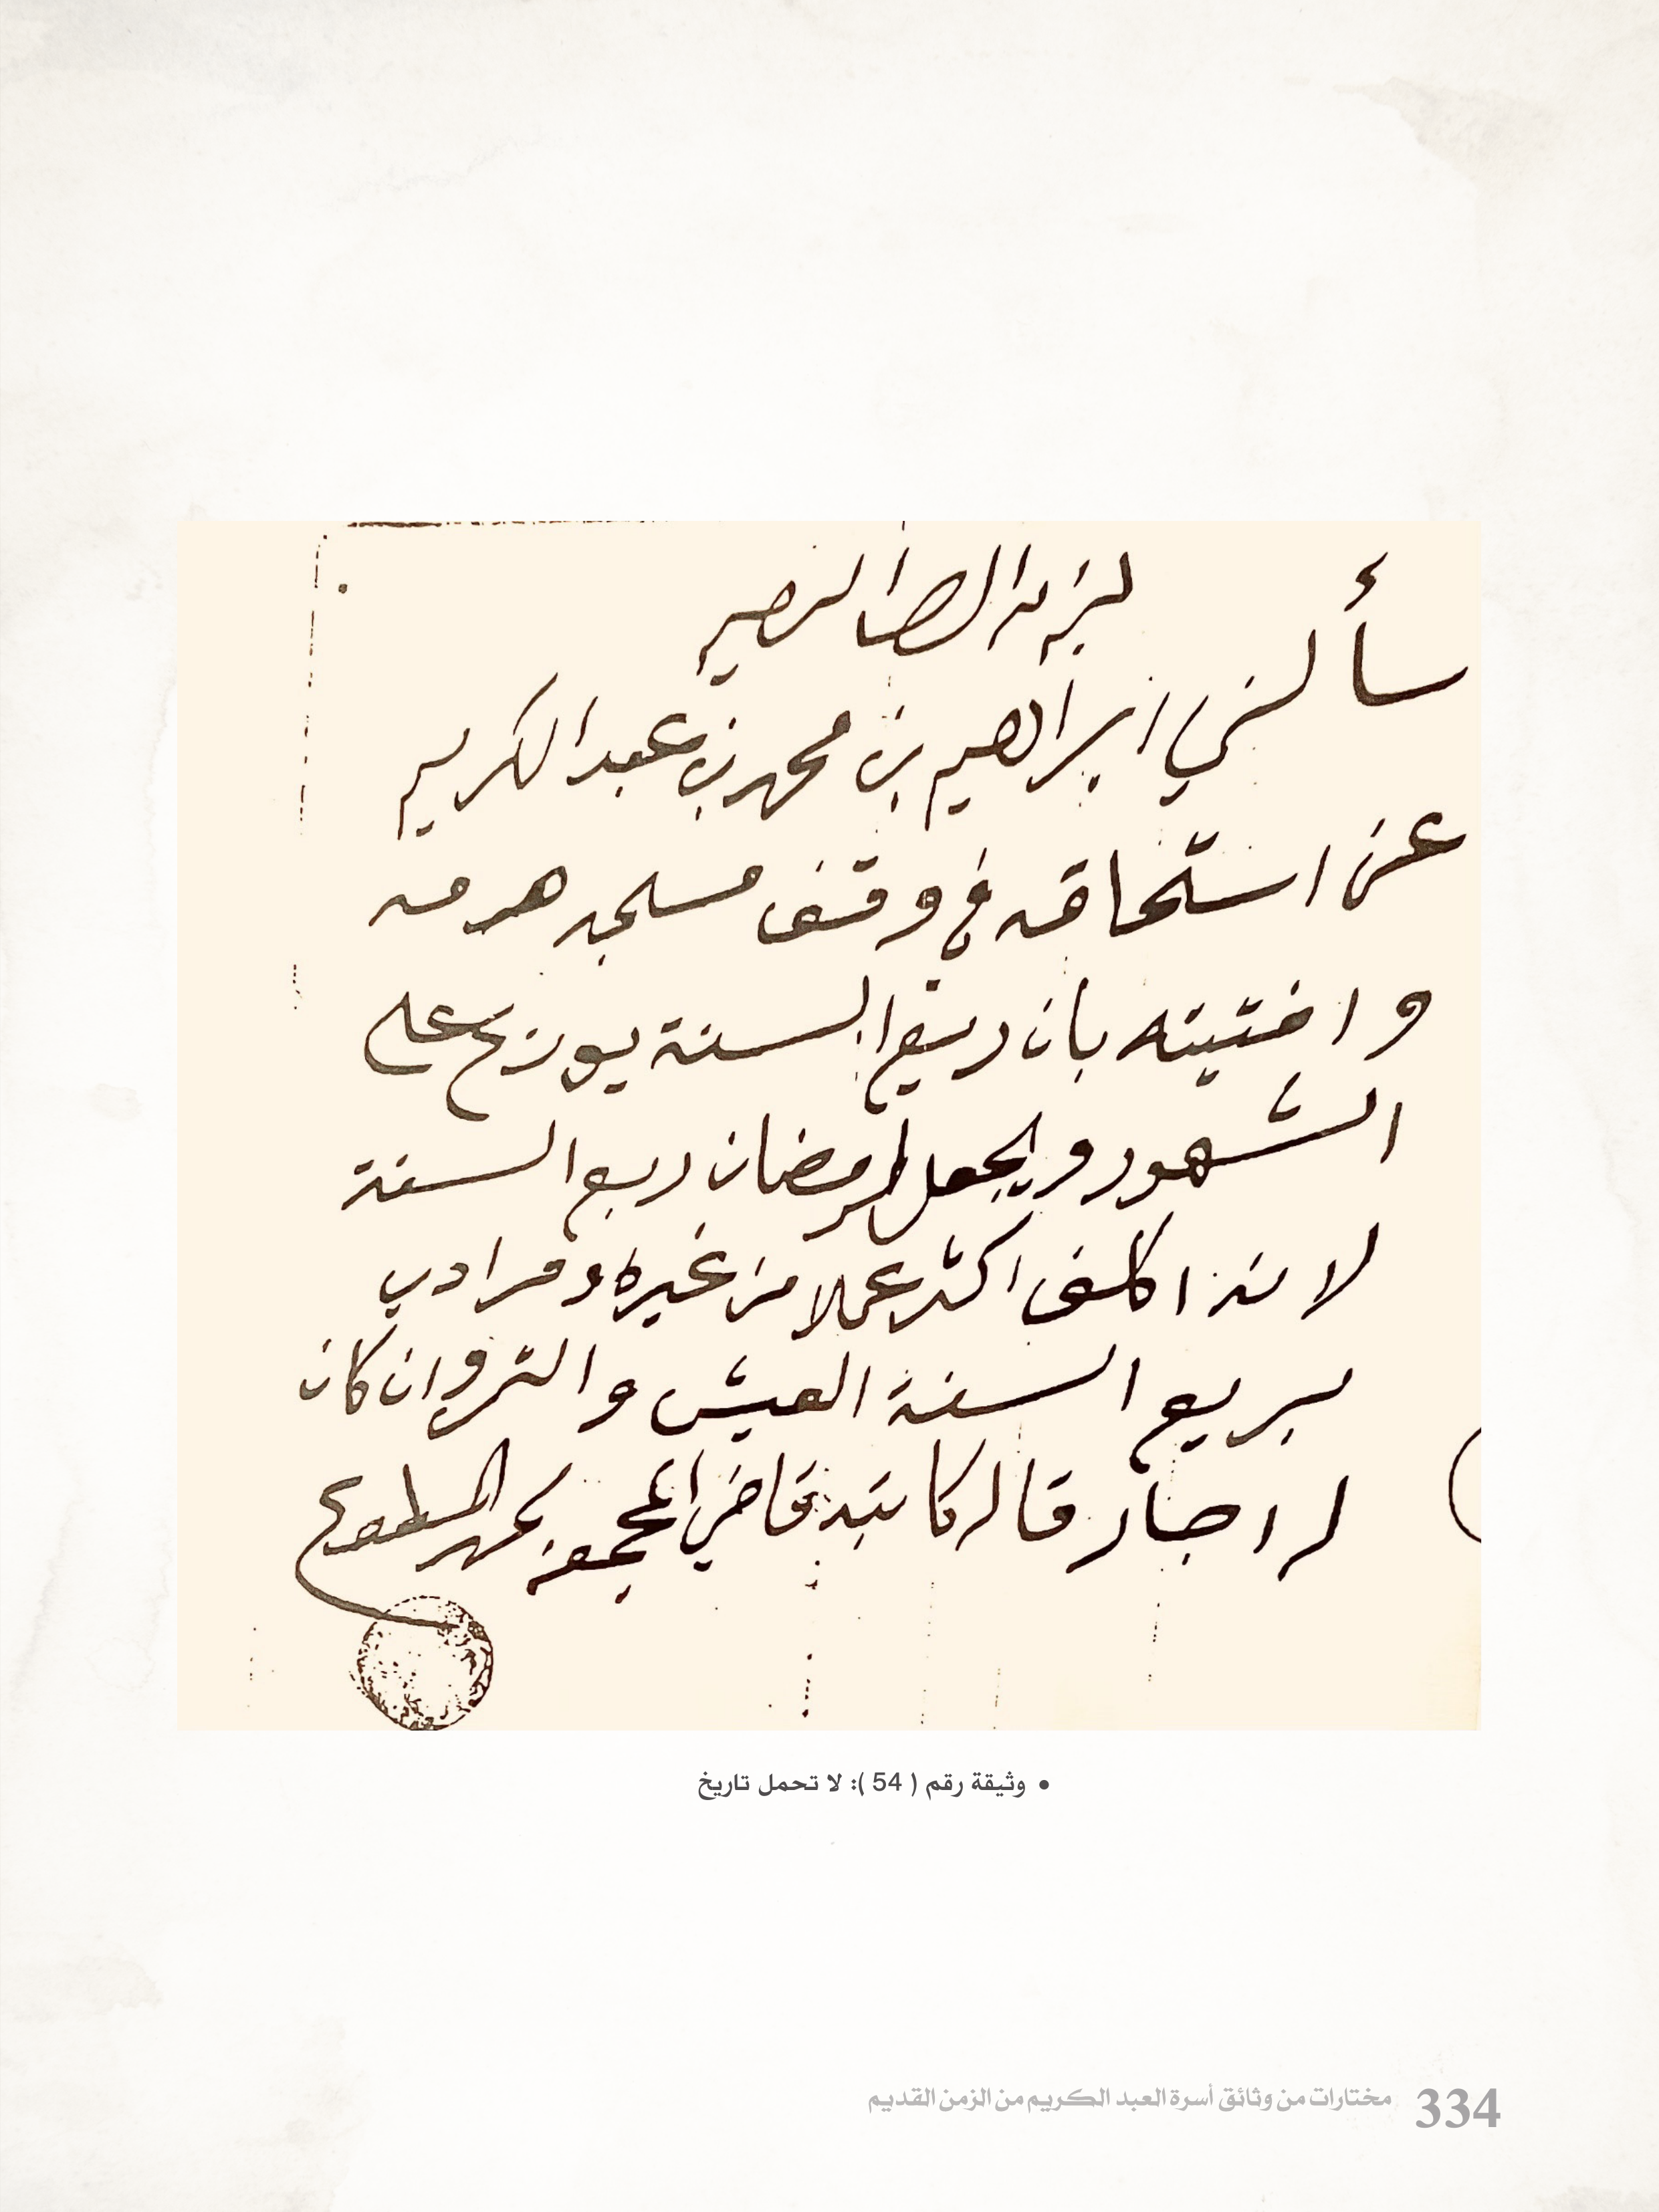 سألني ابراهيم بن محمد بن عبد الكريم
عن استحاقه في وقف مسجد هرمه
وافتيته بان ريع السنة يوزع على
الشهور ويجعل لرمضان ربع السنة
لانه اكلف اكثر عملا من غيره ومرادي
بريع السنة العيش والتمر وان كان
اجار قاله كاتبه قاضي المجمعه محمد المطوع
• وثيقة رقم ( 54 ): لا تحمل تاريخ
334 مختارات من وثائق أسرة العبد الكريم من الزمن القديم